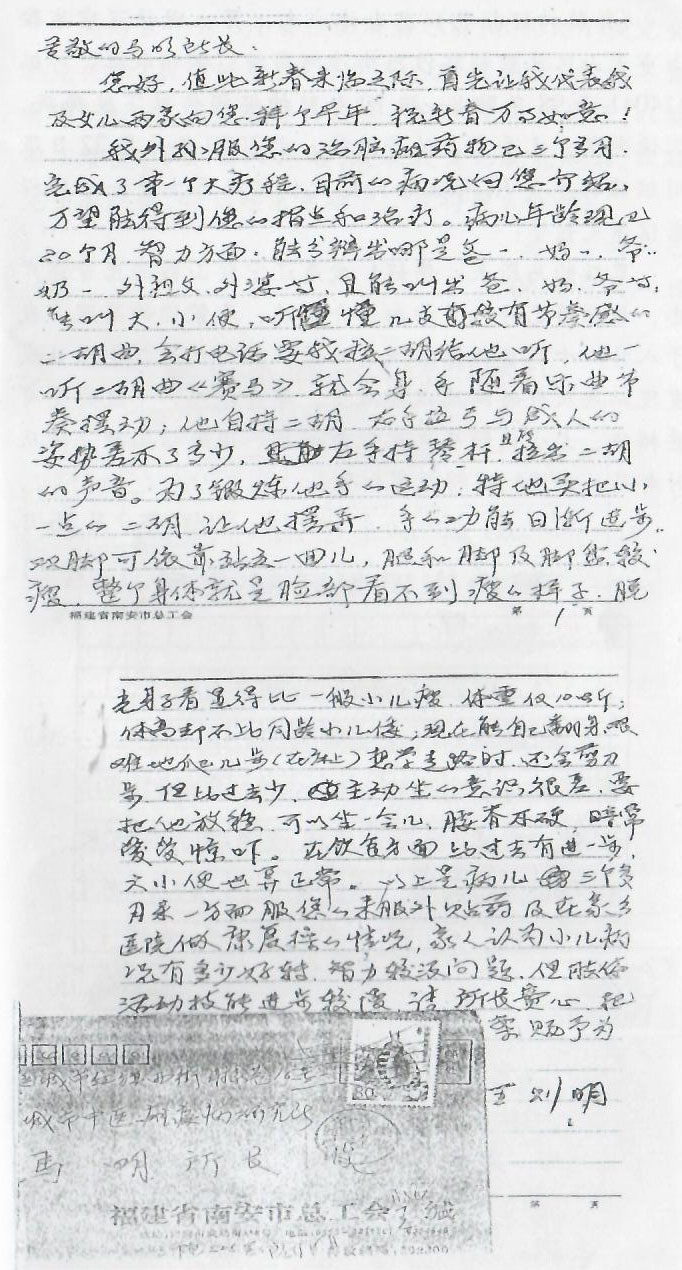 尊敬的马明所长：
您好，值此新春来临之际，首先让我代表我
及女儿两家向您拜个早年，祝新春万事如意！
我外孙服您的治脑瘫药物已三个多月，
完成了第一个大疗程，目前的病况向您介绍，
万望能得到您的指点和治疗。病儿年龄现已
20个月，智力方面，能分辨出哪是爸一、妈一、爷
奶一、外祖父、外婆等，且能叫出爸、妈、爷等，
能叫大、小便，听懂几支有节奏感的
二胡曲，会打电话要我拉二胡给他听，他一
听二胡曲《赛马》就会身、手随着乐曲节
奏摆动；他自持二胡，右手拉弓与成人的
姿势差不了多少，左手持琴杆，且能拉出二胡
的声音。为了锻炼他手的运动，特地买把小
一点的二胡让他摆弄，手的功能日渐进步，
双脚可依靠站立一回儿，腿和脚及脚盘较
瘦，整个身体就是脸部看不到瘦的样子，脱
福建省南安市总工会 第 1 页
光身子看显得比一般小儿瘦，体重仅10公斤，
体高却不比同龄小儿矮；现在能自己翻身，艰
难地爬几步（在床上）想学走路时，还会剪刀
步，但比过去少，主动坐的意识很差，要
把他放稳，可以坐一会儿，腰脊不硬，时常
惊吓。在饮食方面比过去有进一步，
大小便也算正常。以上是病儿三个多
月来一方面服您的来服外贴药及在家乡
医院做康复接的情况，家人认为小儿病
况有多少好转，智力较没问题，但肢体
活动技能进步较慢，请所长费心，把
药赐予为
刘明
马明所长
福建省南安市总工会
第 页